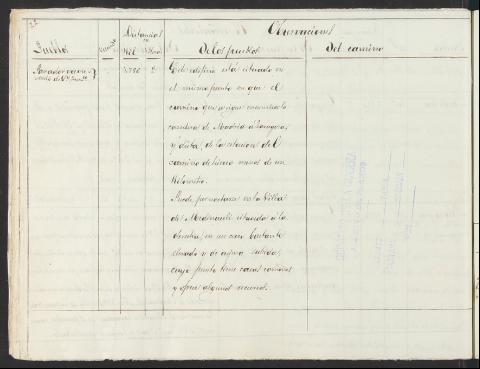 Observaciones
Distancias
en
Pueblos
Kil. Horas
De los pueblos
Del camino
Parador
5.750 2
Este edificio está situado en
el mismo punto en que el
camino que sigue encuentra la
carretera de Madrid a Zaragoza,
y dista, de la estacion del
camino de hierro menos de un
Kilometro.
Puede pernoctarse en la Villa
de Medinaceli situada á la
derecha, en un cerro bastante
elevado y de aspera subida,
cuyo punto tiene casas comodas
y ofrece algunos recursos.